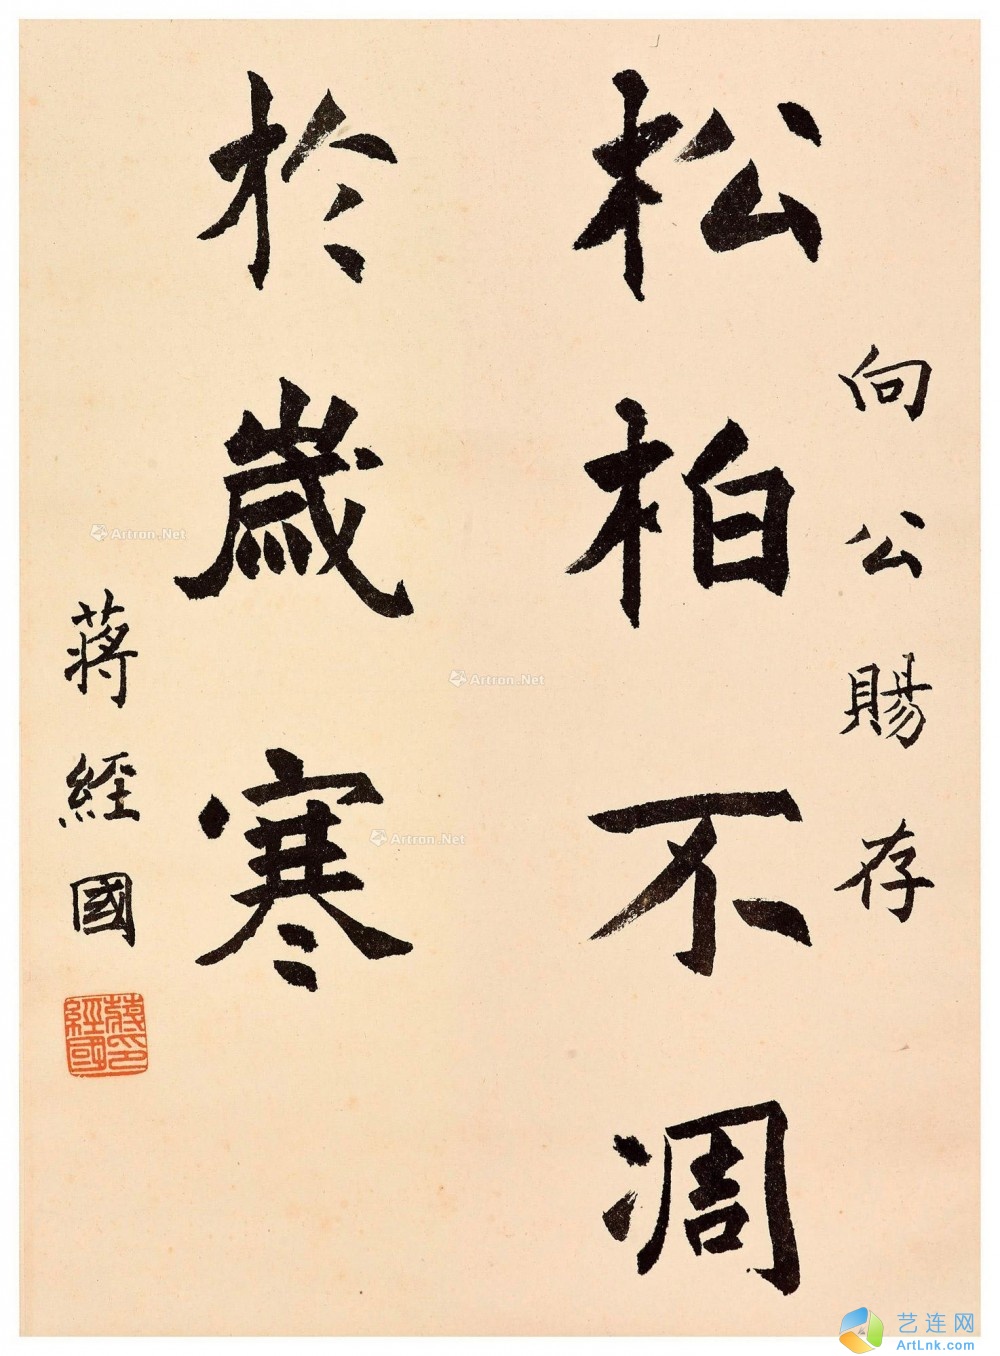 向公賜存
松柏不凋
於歲寒
蔣經國
蔣經國印
Artron.Net
Artron.Net
Artron.Net
艺连网
ArtLnk.com